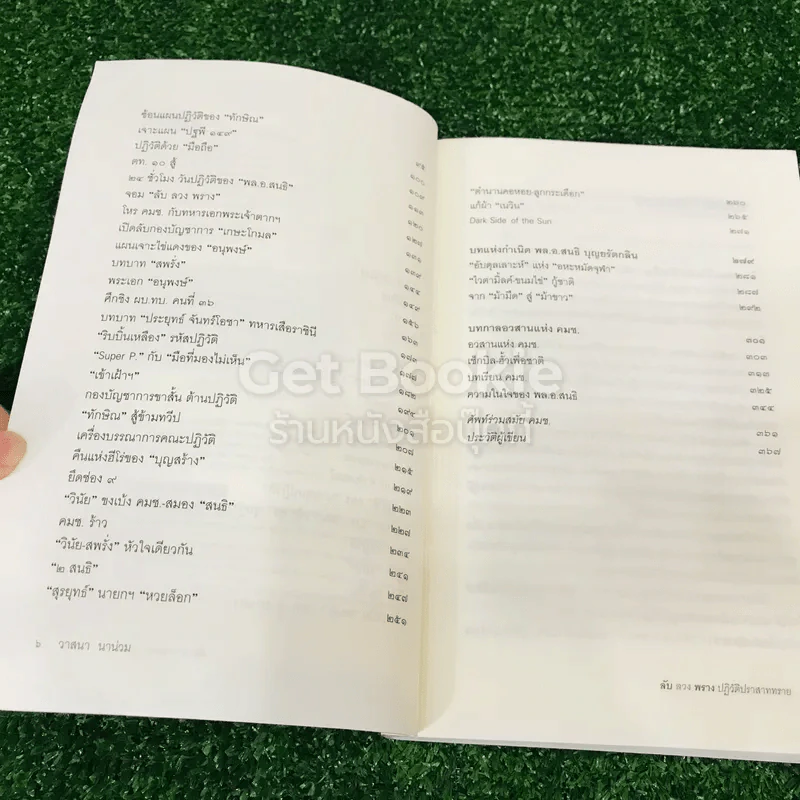 ซ้อนแผนปฏิวัติของ “ทักษิณ”
เจาะแผน “ปฐพี ๑๔๙”
ปฏิวัติด้วย “มือถือ” ๙๕
ตท. ๑๐ สู้ ๑๐๘
๒๔ ชั่วโมง วันปฏิวัติของ “พล.อ.สนธิ” ๑๐๙
จอม “ลับ ลวง พราง” ๑๑๓
โหร คมช. กับทหารเอกพระเจ้าตากฯ ๑๒๐
เปิดลับกองบัญชาการ “เกษะโกมล” ๑๒๗
แผนเจาะไข่แดงของ “อนุพงษ์” ๑๓๑
บทบาท “สพรั่ง” ๑๓๙
พระเอก “อนุพงษ์” ๑๔๔
ศึกชิง ผบ.ทบ. คนที่ ๓๖ ๑๔๙
บทบาท “ประยุทธ์ จันทร์โอชา” ทหารเสือราชินี ๑๕๖
“ริบบิ้นเหลือง” รหัสปฏิวัติ ๑๖๓
“Super P.” กับ “มือที่มองไม่เห็น” ๑๗๓
“เข้าเฝ้าฯ” ๑๗๗
กองบัญชาการขาสั้น ต้านปฏิวัติ ๑๘๒
“ทักษิณ” สู้ข้ามทวีป ๑๙๔
เครื่องบรรณาการคณะปฏิวัติ ๒๐๑
คืนแห่งฮีโร่ของ “บุญสร้าง” ๒๐๘
ยึดช่อง ๙ ๒๑๕
“วินัย” ขงเบ้ง คมช.-สมอง “สนธิ” ๒๑๙
คมช. ร้าว ๒๒๓
“วินัย-สพรั่ง” หัวใจเดียวกัน ๒๒๗
“๒ สนธิ” ๒๓๔
“สุรยุทธ์” นายกฯ “หวยล็อก” ๒๔๑
๒๔๗
๒๕๑
๖ วาสนา นาน่วม
“ตำนานคอหอย-ลูกกระเดือก” ๒๖๐
แก้ผ้า “เนวิน” ๒๖๕
Dark Side of the Sun ๒๗๑
บทแห่งกำเนิด พล.อ.สนธิ บุญยรัตกลิน ๒๗๙
“อับดุลเลาะห์” แห่ง “อหะหมัดจุฬา” ๒๘๑
“ไวตามิ้ลค์-ขนมไข่” กู้ชาติ ๒๘๘
จาก “ม้ามืด” สู่ “ม้าขาว” ๒๙๒
บทกาลอวสานแห่ง คมช. ๓๐๑
อวสานแห่ง คมช. ๓๐๓
เช็กบิล-ฮั้วเพื่อชาติ ๓๑๓
บทเรียน คมช. ๓๒๕
ความในใจของ พล.อ.สนธิ ๓๔๔
ศัพท์ร่วมสมัย คมช. ๓๖๑
ประวัติผู้เขียน ๓๖๗
ลับ ลวง พราง ปฏิวัติปราสาททราย
Get Bookie
ร้านหนังสือบุ๊คกี้